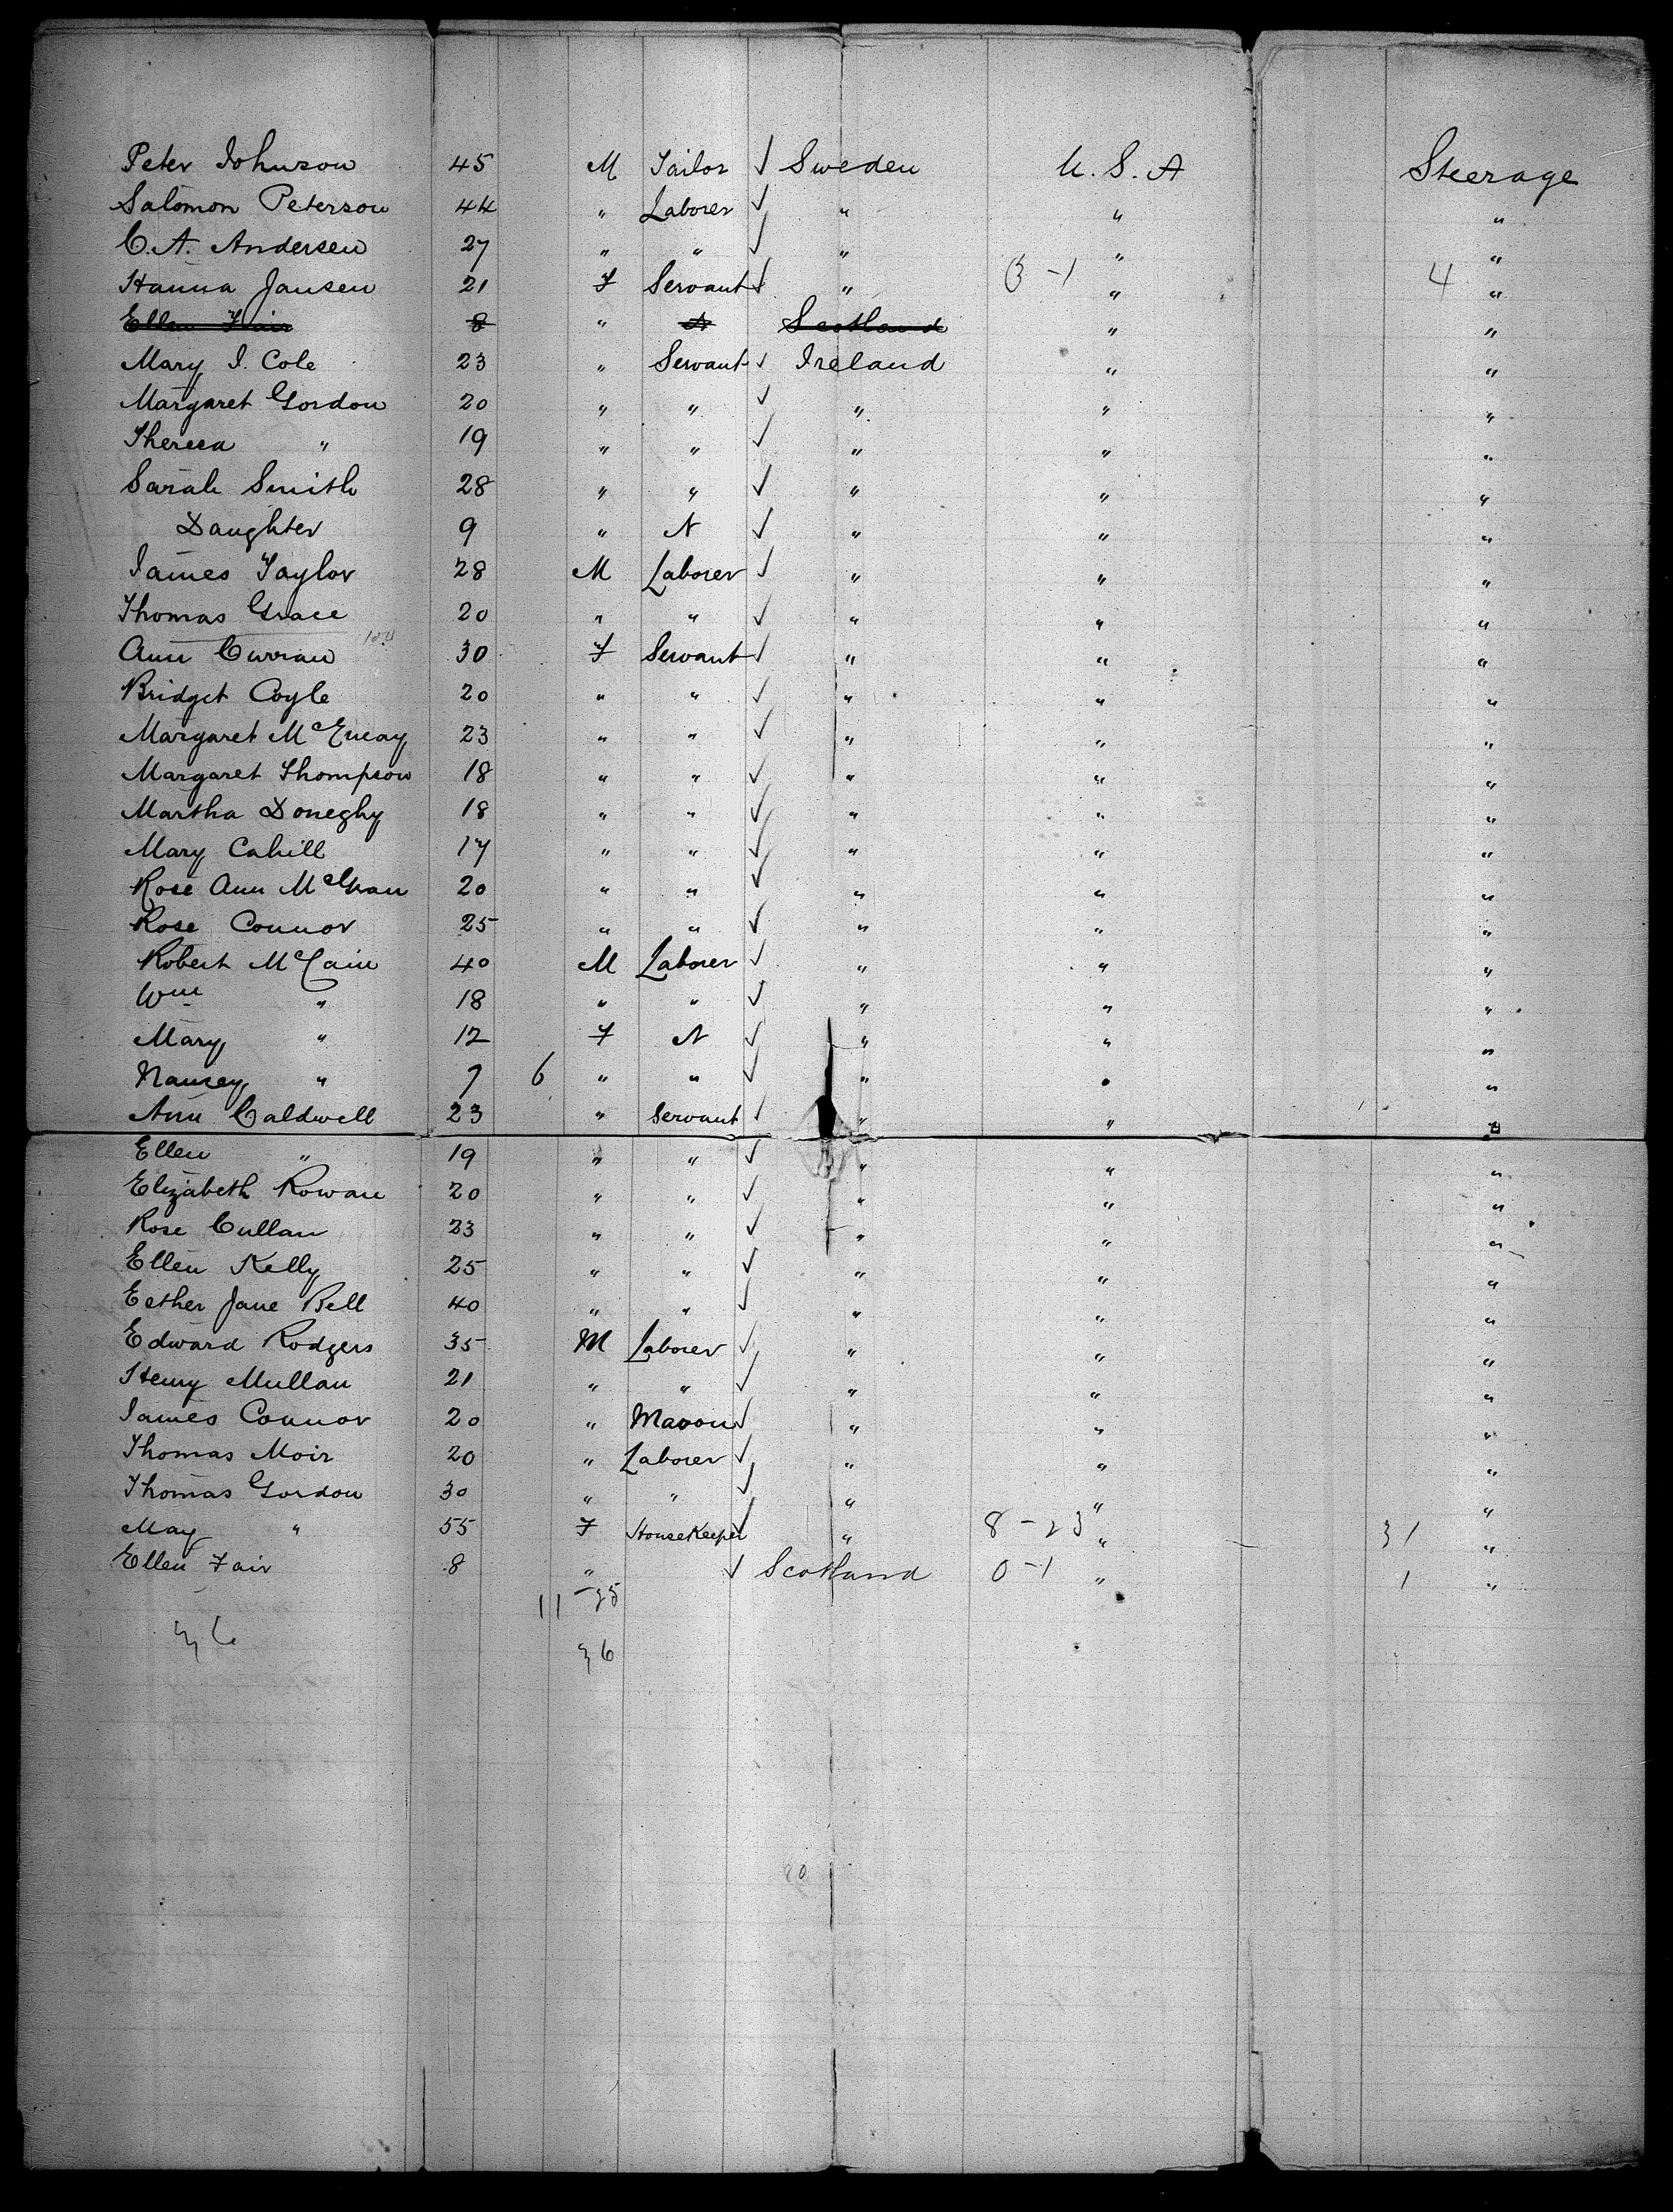 Peter Johnson 45 M Tailor ✓ Sweden U. S. A Steerage
Salomon Peterson 44 " Laborer ✓ " " "
C. A. Andersen 27 " " ✓ " " "
Hanna Jansen 21 F Servant ✓ " 3-1 " 4 "
Ellen Fair 8 " N Scotland " "
Mary J. Cole 23 " Servant ✓ Ireland " "
Margaret Gordon 20 " " ✓ " " "
Theresa " 19 " " ✓ " " "
Sarah Smith 28 " " ✓ " " "
Daughter 9 " N ✓ " " "
James Taylor 28 M Laborer ✓ " " "
Thomas Grace 20 " " ✓ " " "
Ann Curran 30 F Servant ✓ " " "
Bridget Coyle 20 " " ✓ " " "
Margaret McEneay 23 " " ✓ " " "
Margaret Thompson 18 " " ✓ " " "
Martha Doneghy 18 " " ✓ " " "
Mary Cahill 17 " " ✓ " " "
Rose Ann McGran 20 " " ✓ " " "
Rose Connor 25 " " ✓ " " "
Robert McCain 40 M Laborer ✓ " " "
Wm " 18 " " ✓ " " "
Mary " 12 F N ✓ " " "
Nansey " 7 6 " " ✓ " " "
Ann Caldwell 23 " Servant ✓ " " "
Ellen " 19 " " ✓ " " "
Elizabeth Rowan 20 " " ✓ " " "
Rose Cullan 23 " " ✓ " " "
Ellen Kelly 25 " " ✓ " " "
Eether Jane Bell 40 " " ✓ " " "
Edward Rodgers 35 M Laborer ✓ " " "
Henry Mullan 21 " " ✓ " " "
James Connor 20 " Mason ✓ " " "
Thomas Moir 20 " Laborer ✓ " " "
Thomas Gordon 30 " " ✓ " " "
May " 55 F HouseKeeper ✓ " 8-23 " 31 "
Ellen Fair 8 " ✓ Scotland 0-1 " 1 "
11-25
36 36